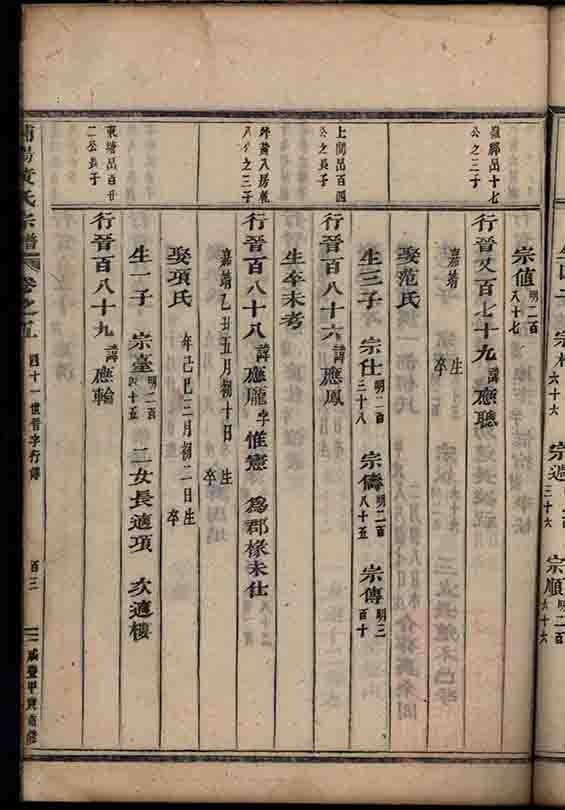 宗值 明二百八十七
嶺腳呂十七公之三子
行晉又百七十九 諱應聰
嘉靖 生 卒
娶范氏
生三子 宗仕 明二百三十八 宗儔 明二百八十五 宗傳 明三百十
上間呂百四公之長子
行晉百八十六 諱應鳳
生卒未考
行晉百八十八 諱應龐 字惟憲 為郡椽未仕
嘉靖乙丑五月初十日生 卒
娶項氏 年己巳三月初二日生 卒
生一子 宗臺 明二百四十五 二女長適項 次適樓
東塘呂百廿二公長子
行晉百八十九 諱應輪
黃氏宗譜 卷之五 四十一世晉字行傳 百三 咸豐甲寅
宗順 明二百六十六